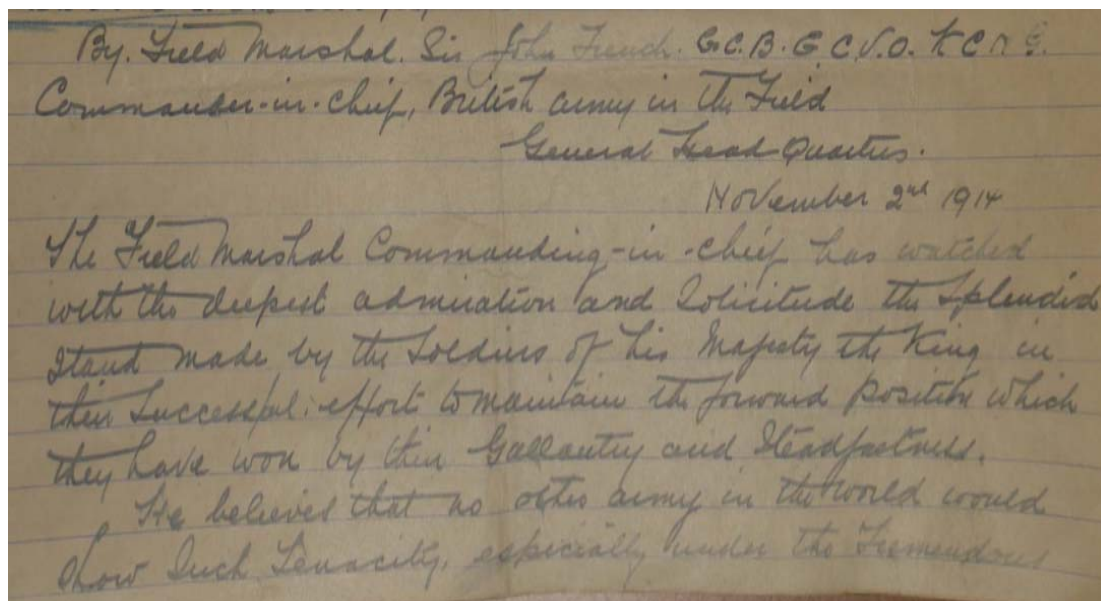 By. Field Marshal. Sir John French. G.C.B. G.C.V.O. K C M G.
Commander-in-chief, British army in the Field
General Head Quarters.
November 2nd 1914
The Field Marshal Commanding-in-chief has watched
with the deepest admiration and Solicitude the Splendid
Stand made by the Soldiers of his Majesty the King in
their Successful effort to maintain the forward position which
they have won by their Gallantry and Steadfastness.
He believes that no other army in the World would
Show Such Tenacity, especially under the Tremendous